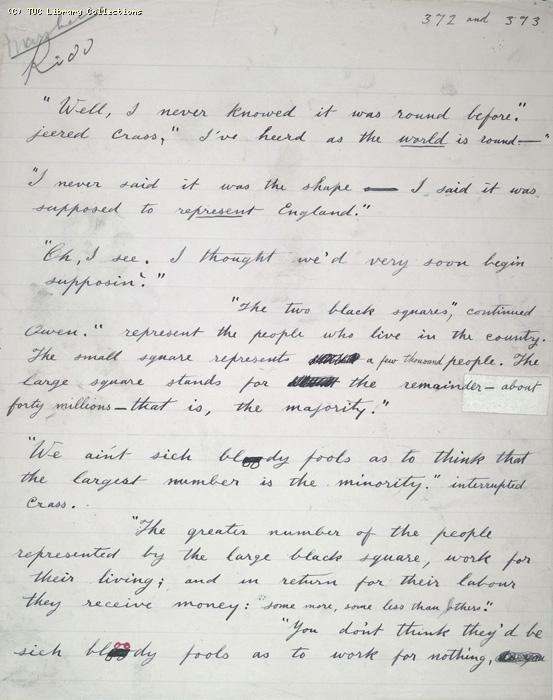 (C) TUC Library Collections
372 and 373
Kidd
"Well, I never knowed it was round before."
jeered Crass, "I've heerd as the world is round—"
"I never said it was the shape — I said it was
supposed to represent England."
"Oh, I see. I thought we'd very soon begin
supposin'."
"The two black squares", continued
Owen. "represent the people who live in the country.
The small square represents a few thousand people. The
large square stands for the remainder – about
forty millions – that is, the majority."
"We ain't sich bloody fools as to think that
the largest number is the minority." interrupted
Crass.
"The greater number of the people
represented by the large black square, work for
their living; and in return for their labour
they receive money: "some more, some less than others."
"You don't think they'd be
sich bloody fools as to work for nothing,